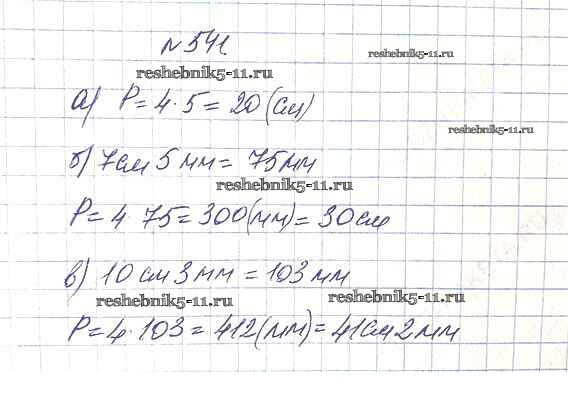 № 541
reshebnik5-11.ru
reshebnik5-11.ru
а) P = 4 · 5 = 20 (см)
reshebnik5-11.ru
б) 7см 5 мм = 75мм
reshebnik5-11.ru
P = 4 · 75 = 300(мм) = 30см
в) 10 см 3 мм = 103 мм
reshebnik5-11.ru
reshebnik5-11.ru
P = 4 · 103 = 412(мм) = 41см 2мм